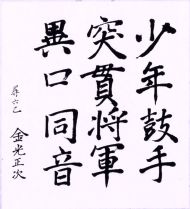 少年鼓手
突貫将軍
異口同音
金光正次